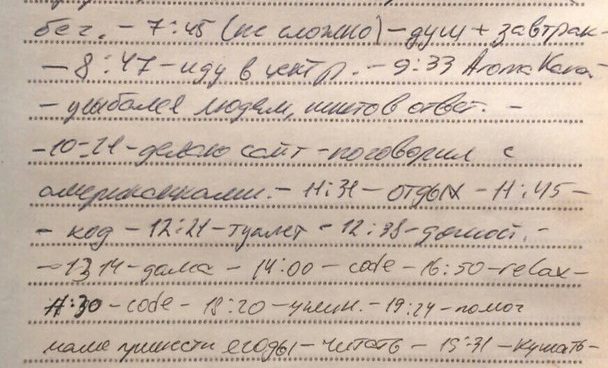 бег. – 7:45 (не сложно) – душ + завтрак –
– 8:47 – иду в центр. – 9:33 Aroma Kava –
– улыбался людям, никто в ответ. –
– 10:21 – делаю сайт – поговорил с
американками. – 11:31 – отдых – 11:45 –
– код – 12:21 – туалет – 12:38 –
– 13 14 – дома – 14:00 – code – 16:50 – relax –
17:30 – code – 18:20 – ужин. – 19:24 – помог
маме принести ягоды – читать – 19:31 – кушать –